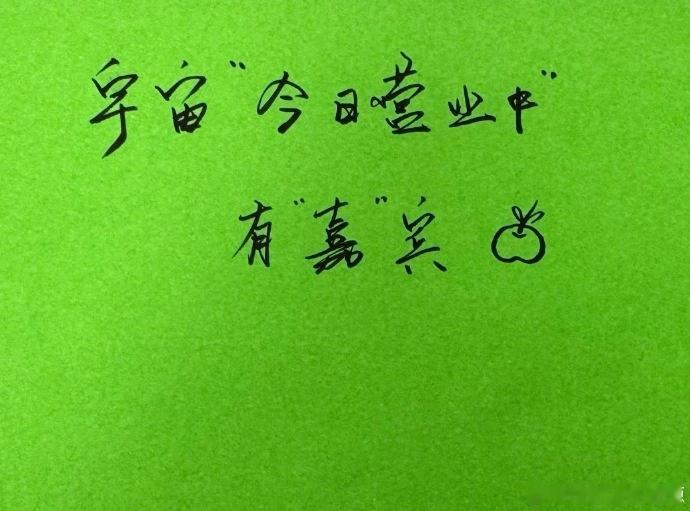 宇宙“今日营业中”
有“嘉”宾